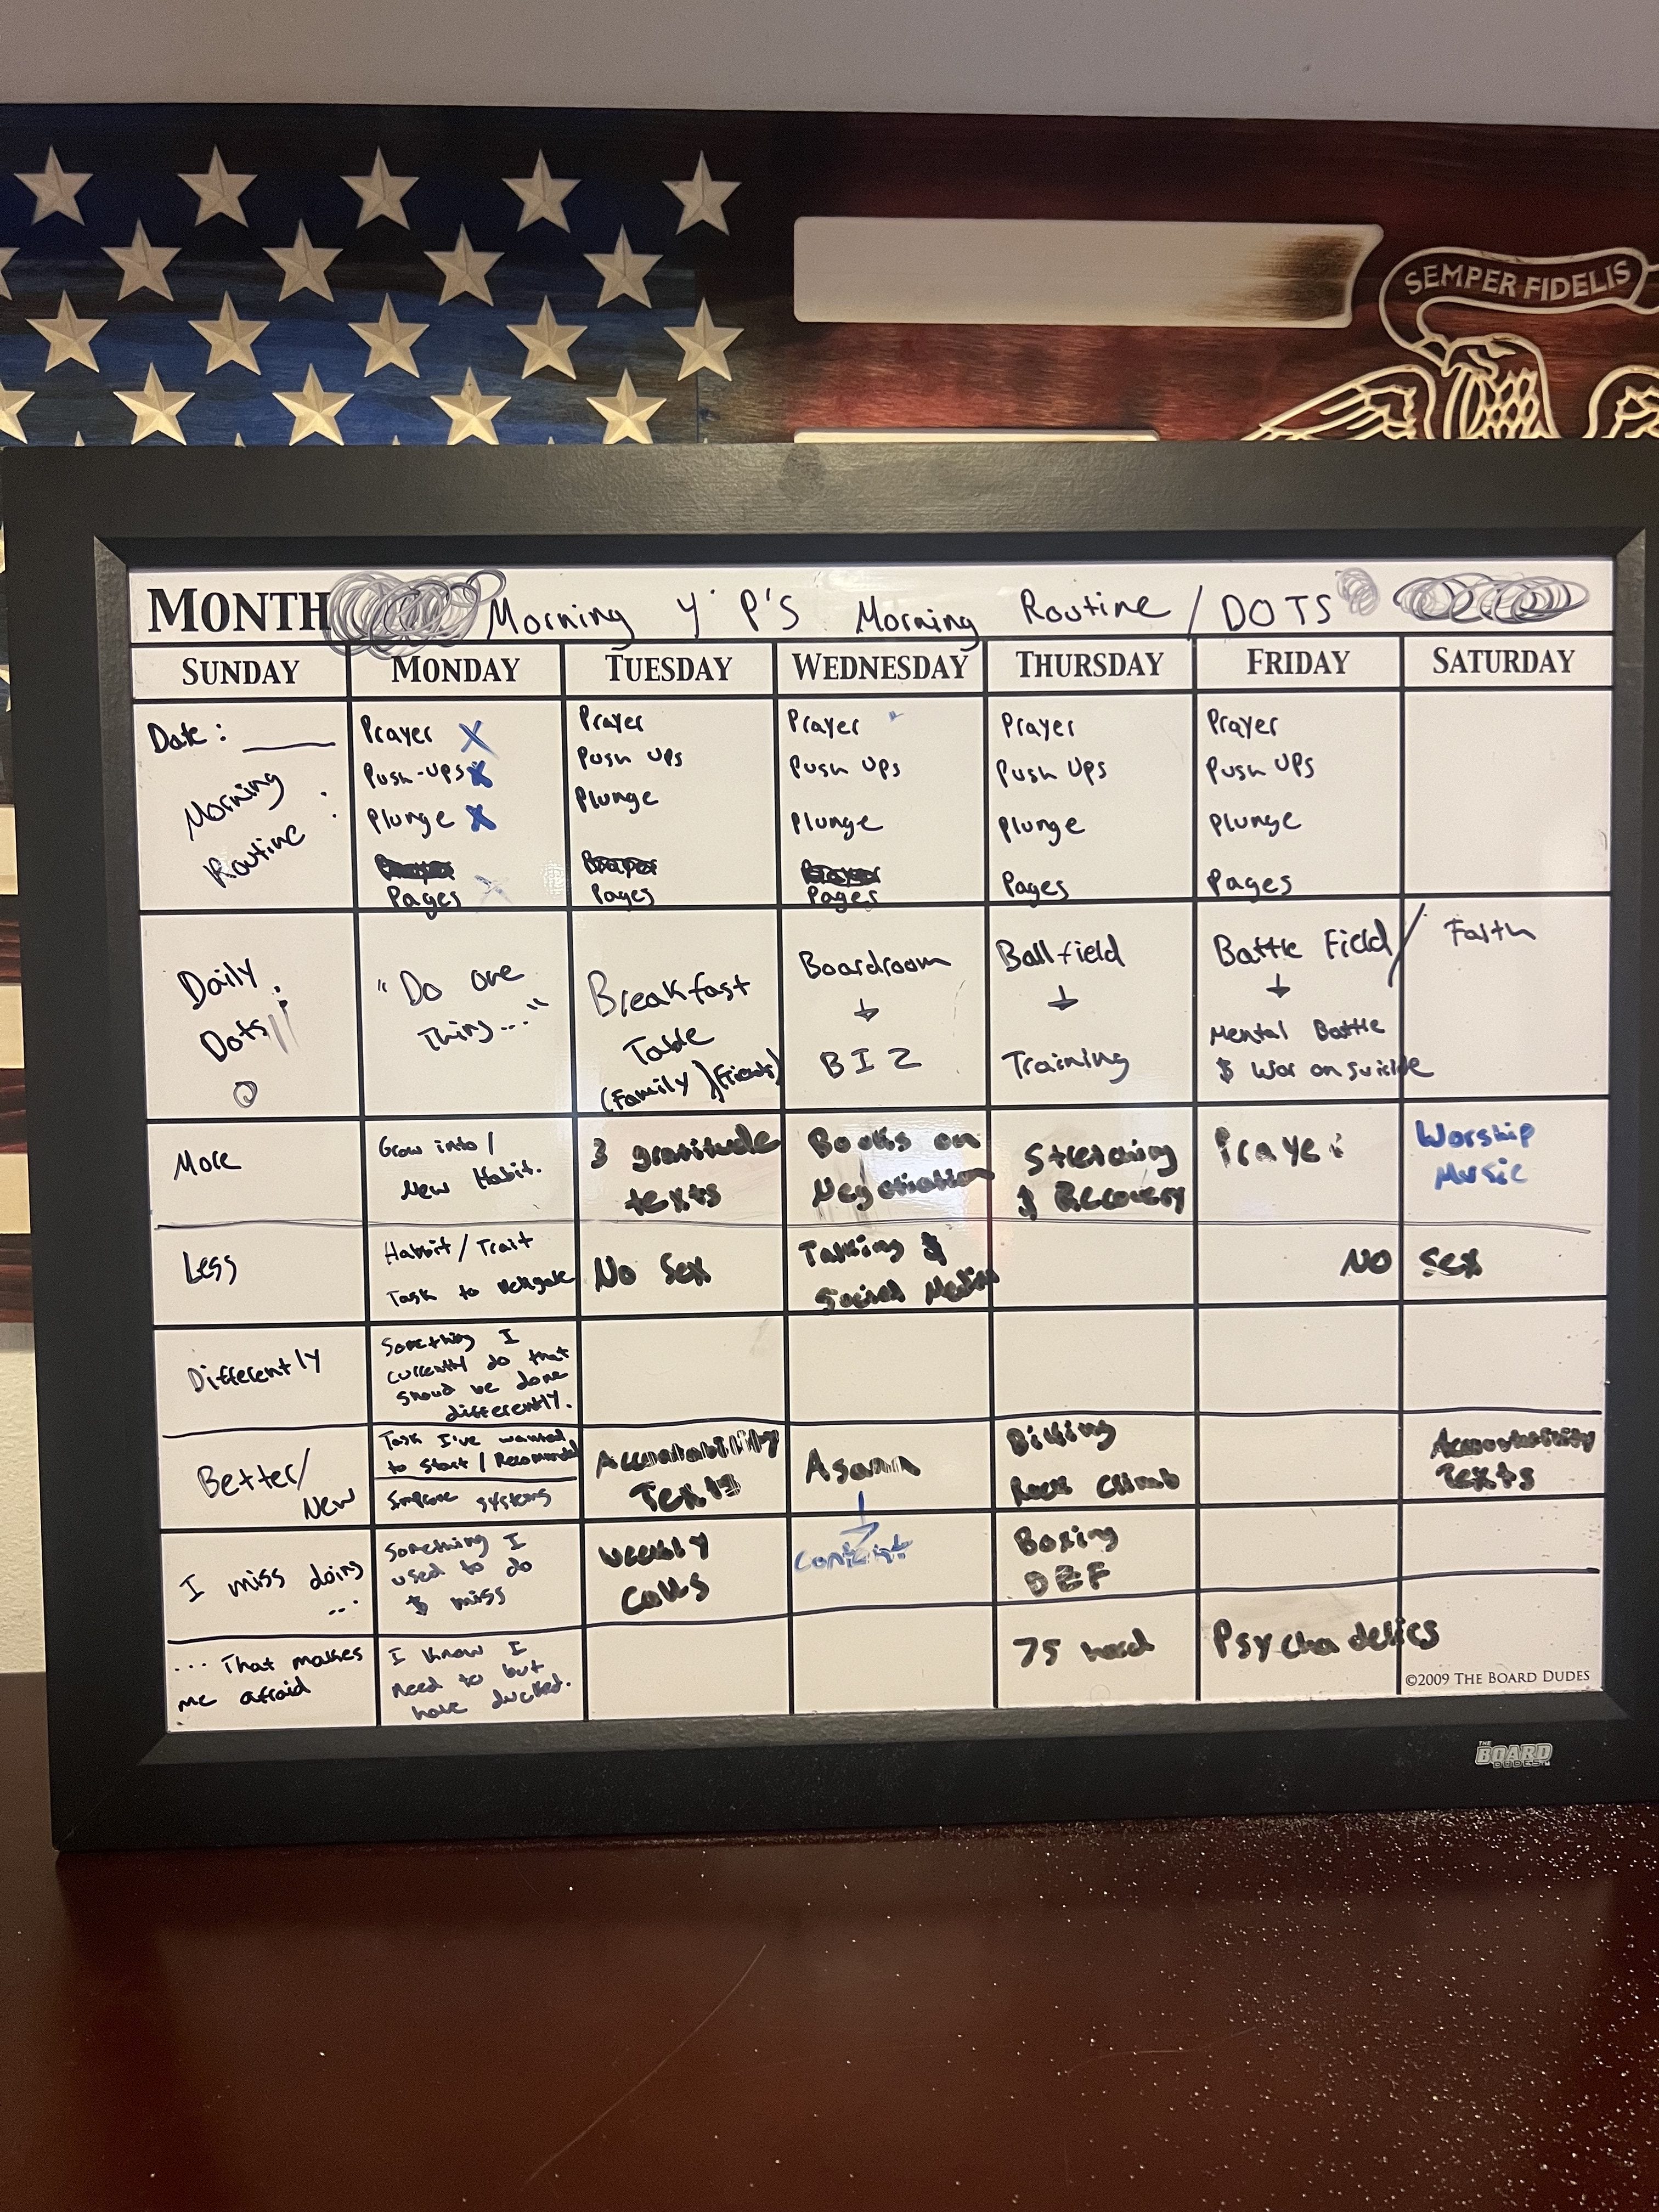 SEMPER FIDELIS
MONTH Morning 4 P'S Morning Routine / DOTS
SUNDAY MONDAY TUESDAY WEDNESDAY THURSDAY FRIDAY SATURDAY
Date: ____
Morning
Routine :
Prayer X
Push-ups X
Plunge X
Pages X
Prayer
Push ups
Plunge
Pages
Prayer
Push ups
Plunge
Pages
Prayer
Push ups
Plunge
Pages
Prayer
Push ups
Plunge
Pages
Daily
Dots
"Do one
Thing..."
Breakfast
Table
(Family)(Friends)
Boardroom
↓
BIZ
Ballfield
↓
Training
Battle Field / Faith
↓
Mental Battle
$ War on suicide
More
Grow into /
New Habit.
3 gratitude
texts
Books on
Negotiation
Stretching
$ Recovery
Prayer
Worship
Music
Less
Habbit / Trait
Task to
No Sex
Talking $
Social Media
NO Sex
Differently
Something I
currently do that
shoud be done
differently.
Better/
New
Task I've wanted
to start / Recommended
Improve systems
Accountability
Texts
Asana
Biking
Rock climb
Accountability
Texts
I miss doing
...
Something I
used to do
$ miss
Weekly
Calls
Boxing
DEF
... That makes
me afraid
I know I
need to but
have ducked.
75 hard
Psychadelics
©2009 THE BOARD DUDES
THE
BOARD
DUDES™